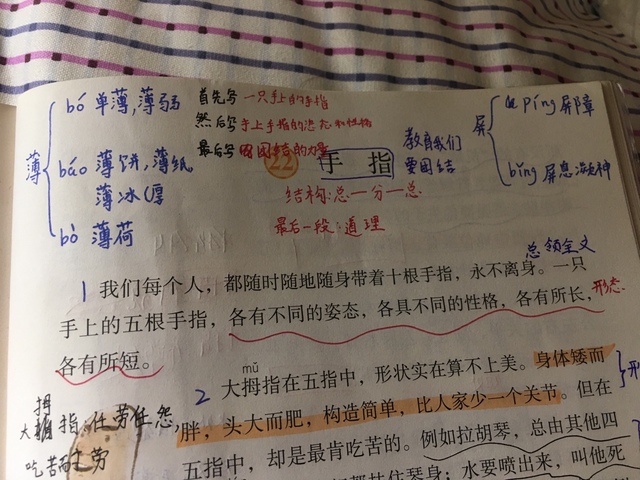 薄
bó 单薄,薄弱
báo 薄饼,薄纸
薄冰 厚
bò 薄荷
首先写 一只手上的手指
然后写 手上手指的姿态和性格
最后写 团结的力量
22 手 指
教育我们
要团结
结构:总一分一总
最后一段:道理
屏
píng 屏障
bǐng 屏息凝神
总领全文
1 我们每个人,都随时随地随身带着十根手指,永不离身。一只
手上的五根手指,各有不同的姿态,各具不同的性格,各有所长,
形态
各有所短。
mǔ
2 大拇指在五指中,形状实在算不上美。身体矮而
胖,头大而肥,构造简单,比人家少一个关节。但在
形
五指中,却是最肯吃苦的。例如拉胡琴,总由其他四
水要喷出来,叫他死
拇
大 指:任劳任怨,
吃苦 劳